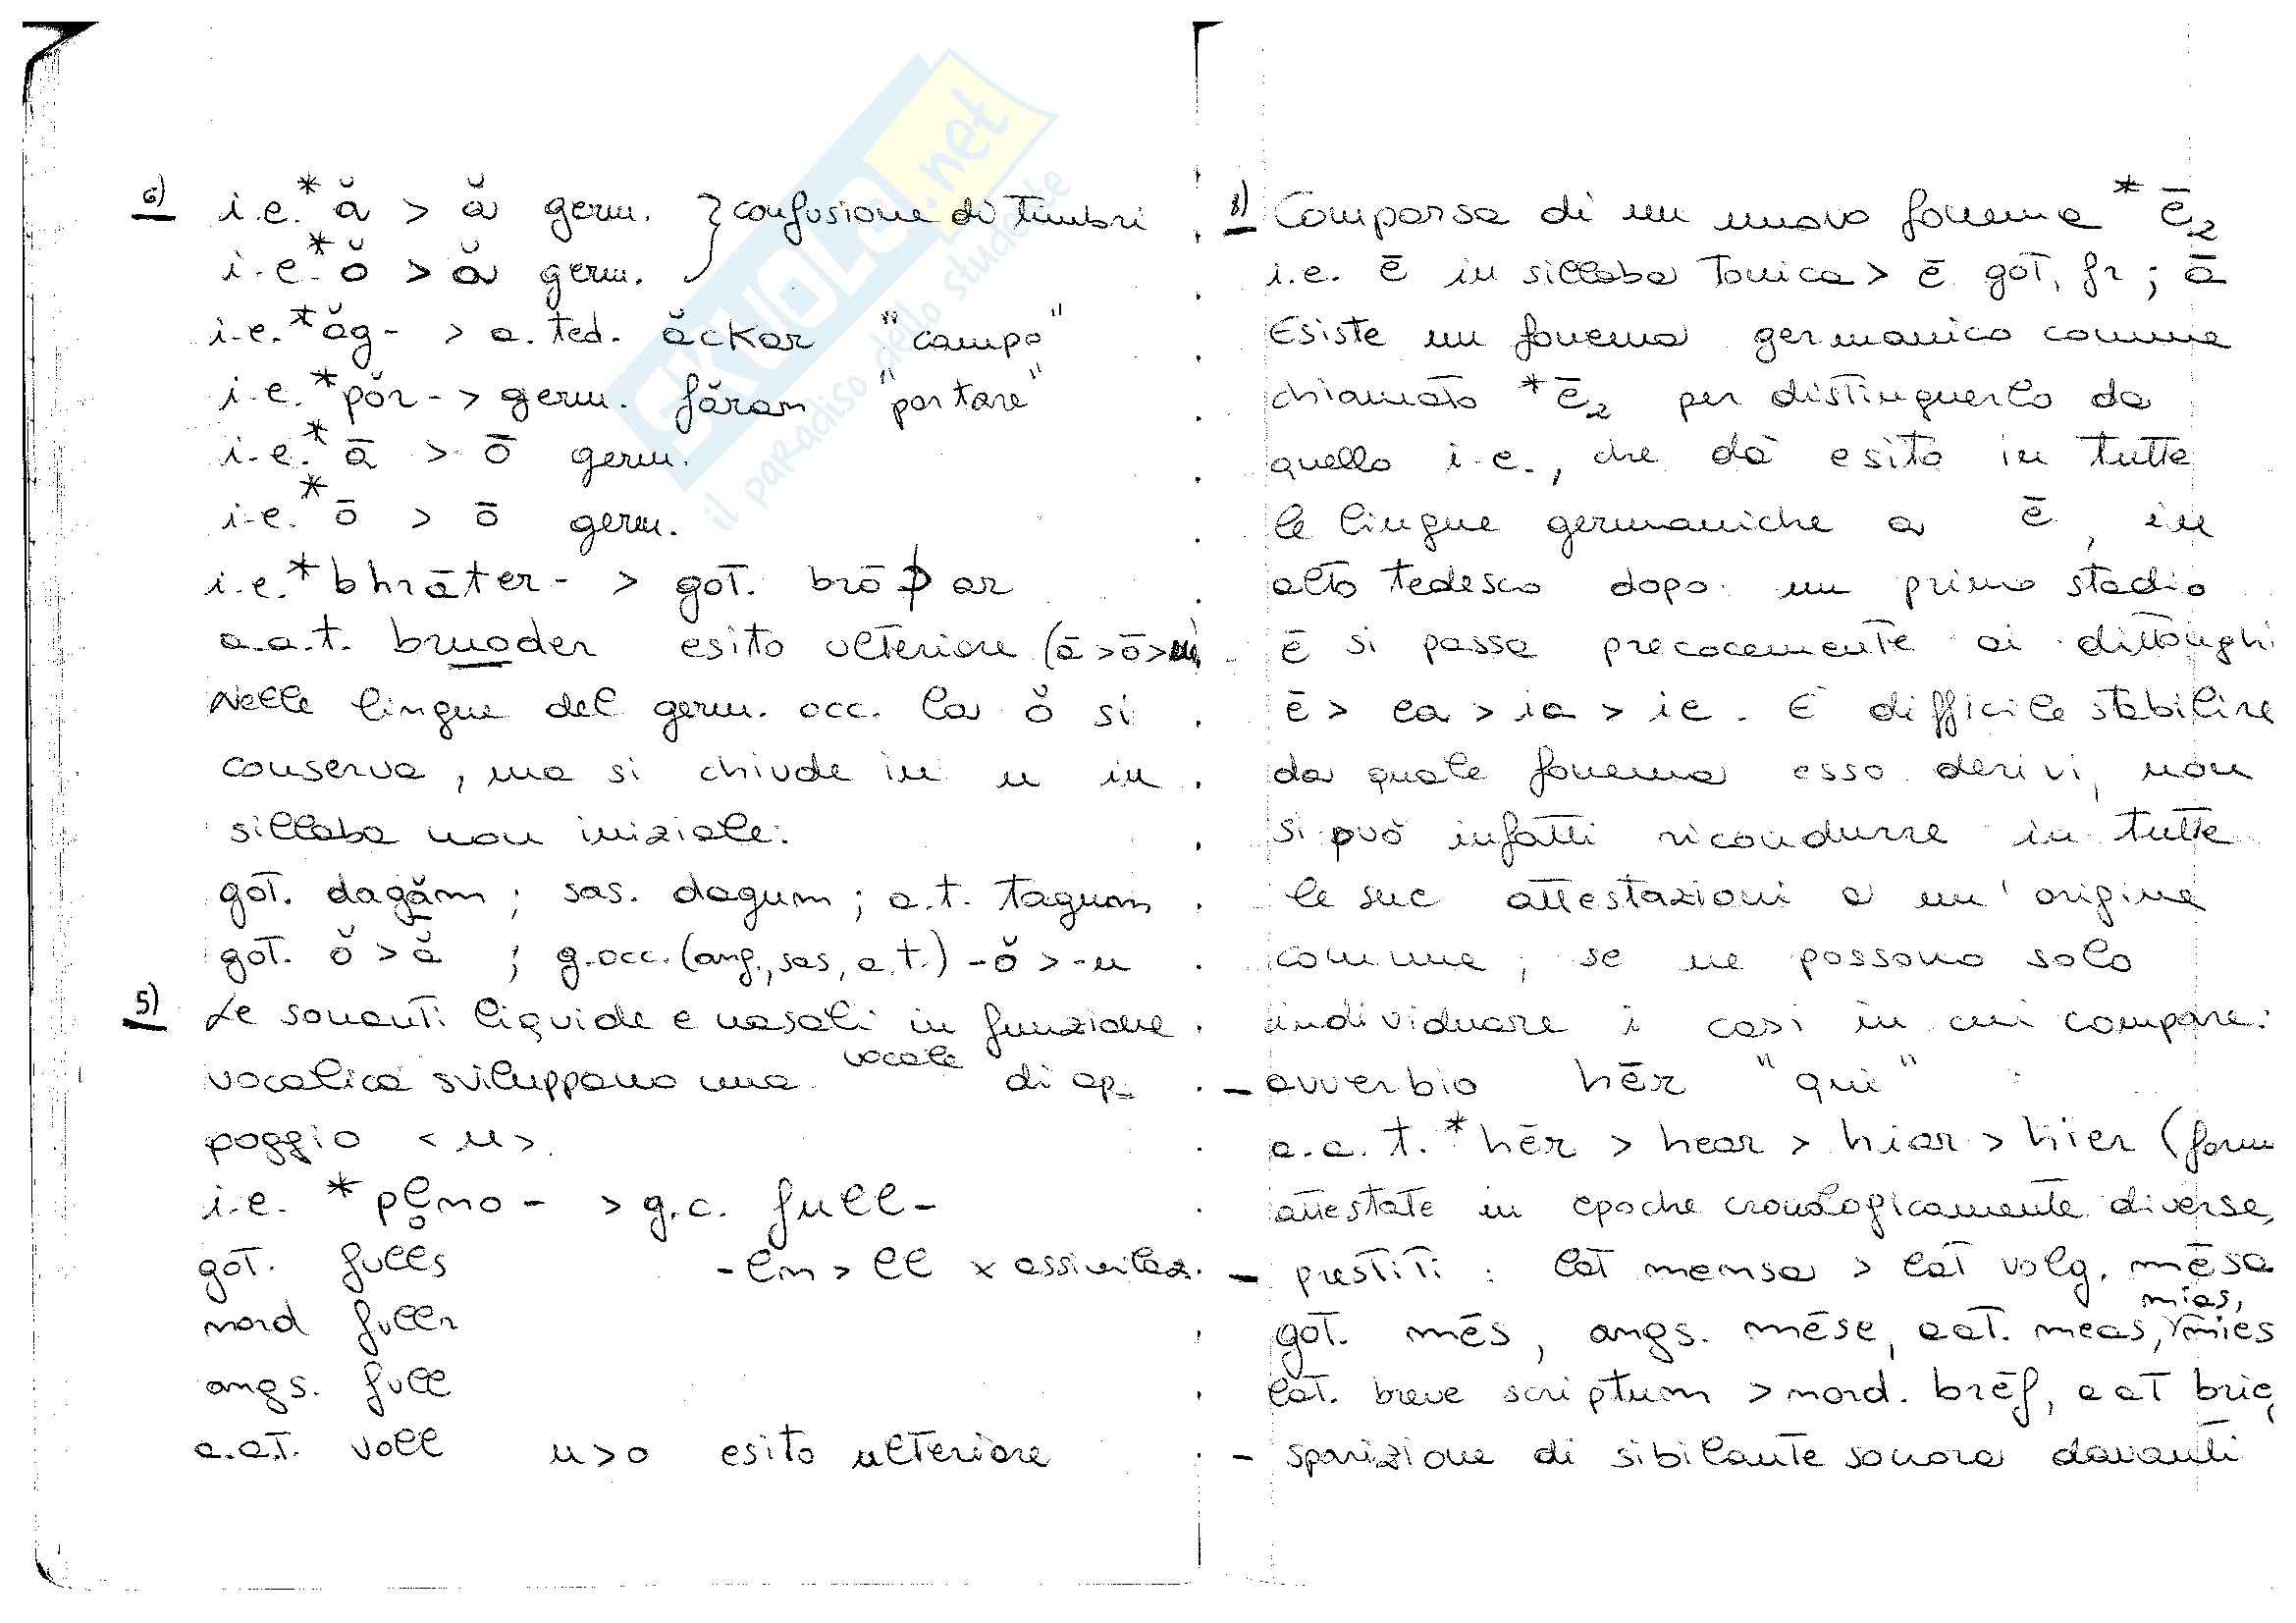 6) i.e.* ă > ă germ. } confusione di timbri
i.e.* ŏ > ă germ.
i.e.* ăg- > a. ted. ăckar "campo"
i.e.* pŏr- > germ. făram "portare"
i.e.* ā > ō germ.
i.e.* ō > ō germ.
i.e.* bhrāter- > got. brōþar
a.a.t. bruoder esito ulteriore (ā>ō>
Nelle lingue del germ. occ. la ŏ si
conserva, ma si chiude in u in
sillaba non iniziale:
got. dagăm; sas. dagum; a.t. tagum
got. ŏ > ă ; g.occ. (ang., sas, a.t.) -ŏ > -u
5) Le sonanti liquide e nasali in funzione
vocalica sviluppano una vocale di ap-
poggio <u>.
i.e. *pl̥no- > g.c. full-
got. fulls -ln > ll x assimilaz.
nord fullr
angs. full
a.at. voll u>o esito ulteriore
8) Comparsa di un nuovo fonema * ē₂
i.e. ē in sillaba tonica > ē got, fr; ā
Esiste un fonema germanico comune
chiamato *ē₂ per distinguerlo da
quello i.e., che dà esito in tutte
le lingue germaniche a ē, in
alto tedesco dopo un primo stadio
ē si passa precocemente ai dittonghi
ē > ea > ia > ie. È difficile stabilire
da quale fonema esso derivi, non
si può infatti ricondurre in tutte
le sue attestazioni a un' origine
comune, se ne possono solo
individuare i casi in cui compare:
- avverbio hēr "qui"
a.a.t. *hēr > hear > hiar > hier (form
attestate in epoche cronologicamente diverse,
- prestiti: lat mensa > lat volg. mēsa
got. mēs, angs. mēse, aat. meas, mias, mies
lat. breve scriptum > nord. brēf, aat brie
- sparizione di sibilante sonora davanti
SKUOLA.net
il paradiso dello studente